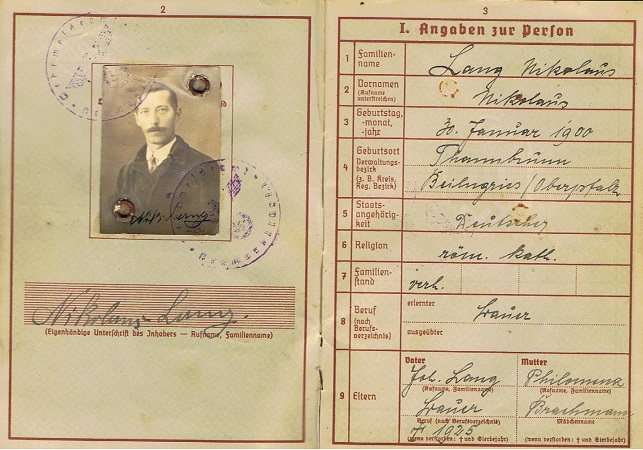 2
Nikolaus Lang.
(Eigenhändige Unterschrift des Inhabers — Rufname, Familienname)
3
I. Angaben zur Person
1 Familien-
name
Lang Nikolaus
2 Vornamen
(Rufname
unterstreichen)
Nikolaus
3 Geburtstag,
-monat,
-jahr
30. Januar 1900
4 Geburtsort
Verwaltungs-
bezirk
(z. B. Kreis,
Reg. Bezirk)
Thannbrunn
Beilngries/Oberpfalz
5 Staats-
angehörig-
keit
Deutscher
6 Religion
röm. kath.
7 Familien-
stand
verh.
8 Beruf
(nach
Berufs-
verzeichnis)
erlernter
Bauer
ausgeübter
9 Eltern
Vater
Joh. Lang
(Rufname, Familienname)
Bauer
Beruf (nach Berufsverzeichnis)
† 1925
(wenn verstorben: † und Sterbejahr)
Mutter
Philomena
(Rufname, Familienname)
Brachmann
Mädchenname
(wenn verstorben: † und Sterbejahr)